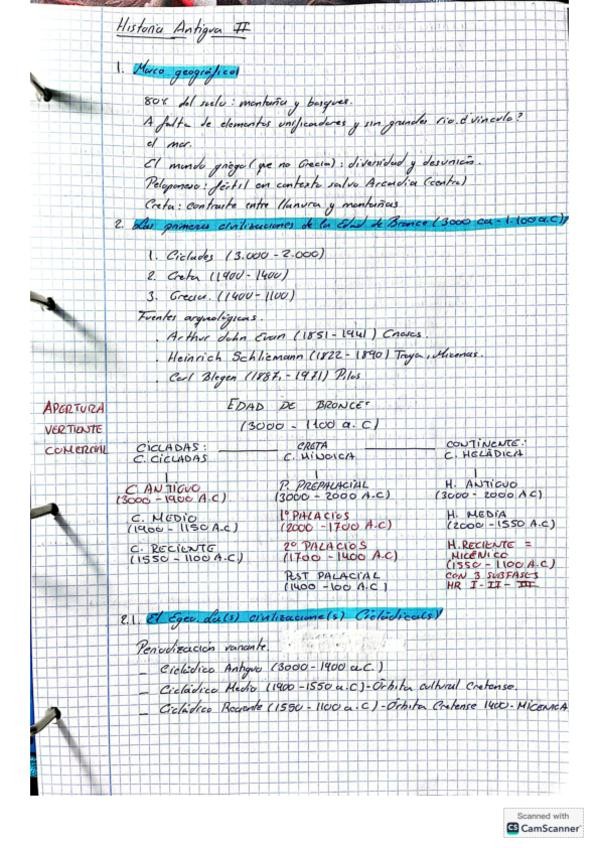 Historia Antigua II
1. Marco geográfico
80% del suelo: montaña y bosques.
A falta de elementos unificadores y sin grandes rio. d vinculo?
el mar.
El mundo griego (que no Grecia): diversidad y desunión.
Peloponeso: fértil en contexto salvo Arcadia (centro)
Creta: contraste entre llanura y montañas
2. Las primeras civilizaciones de la Edad de Bronce (3000 ca - 1.100 a.C)
1. Cicladas (3.000 - 2.000)
2. Creta (1900 - 1400)
3. Grecia. (1400 - 1100)
Fuentes arqueológicas.
. Arthur John Evan (1851 - 1941) Cnosos.
. Heinrich Schliemann (1822 - 1890) Troya, Micenas.
. Carl Blegen (1887, - 1971) Pilos
APERTURA
VERTIENTE
COMERCIAL
EDAD DE BRONCE:
(3000 - 1100 a. C)
CICLADAS: CRETA CONTINENTE:
C. CICLADAS C. MINOICA C. HELÁDICA
C. ANTIGUO P. PREPALACIAL H. ANTIGUO
(3000 - 1900 A.C) (3000 - 2000 A.C) (3000 - 2000 AC)
C. MEDIO 1º PALACIOS H. MEDIA
(1900 - 1150 A.C) (2000 - 1700 A.C) (2000 - 1550 A.C)
C. RECIENTE 2º PALACIOS H. RECIENTE =
(1550 - 1100 A.C) (1700 - 1400 A.C) MICÉNICO
(1550 - 1100 A.C)
POST PALACIAL CON 3 SUBFASES
(1400 - 100 A.C) HR I - II - III
2.1. El Egeo. La(s) civilizacione(s) Cicládica(s)
Periodización variante.
- Cicládico Antiguo (3000 - 1900 a.C.)
- Cicládico Medio (1900 - 1550 a.C) - Órbita cultural Cretense.
- Cicládico Reciente (1550 - 1100 a.C) - Órbita Cretense 1400 - MICENICA
Scanned with
CS CamScanner